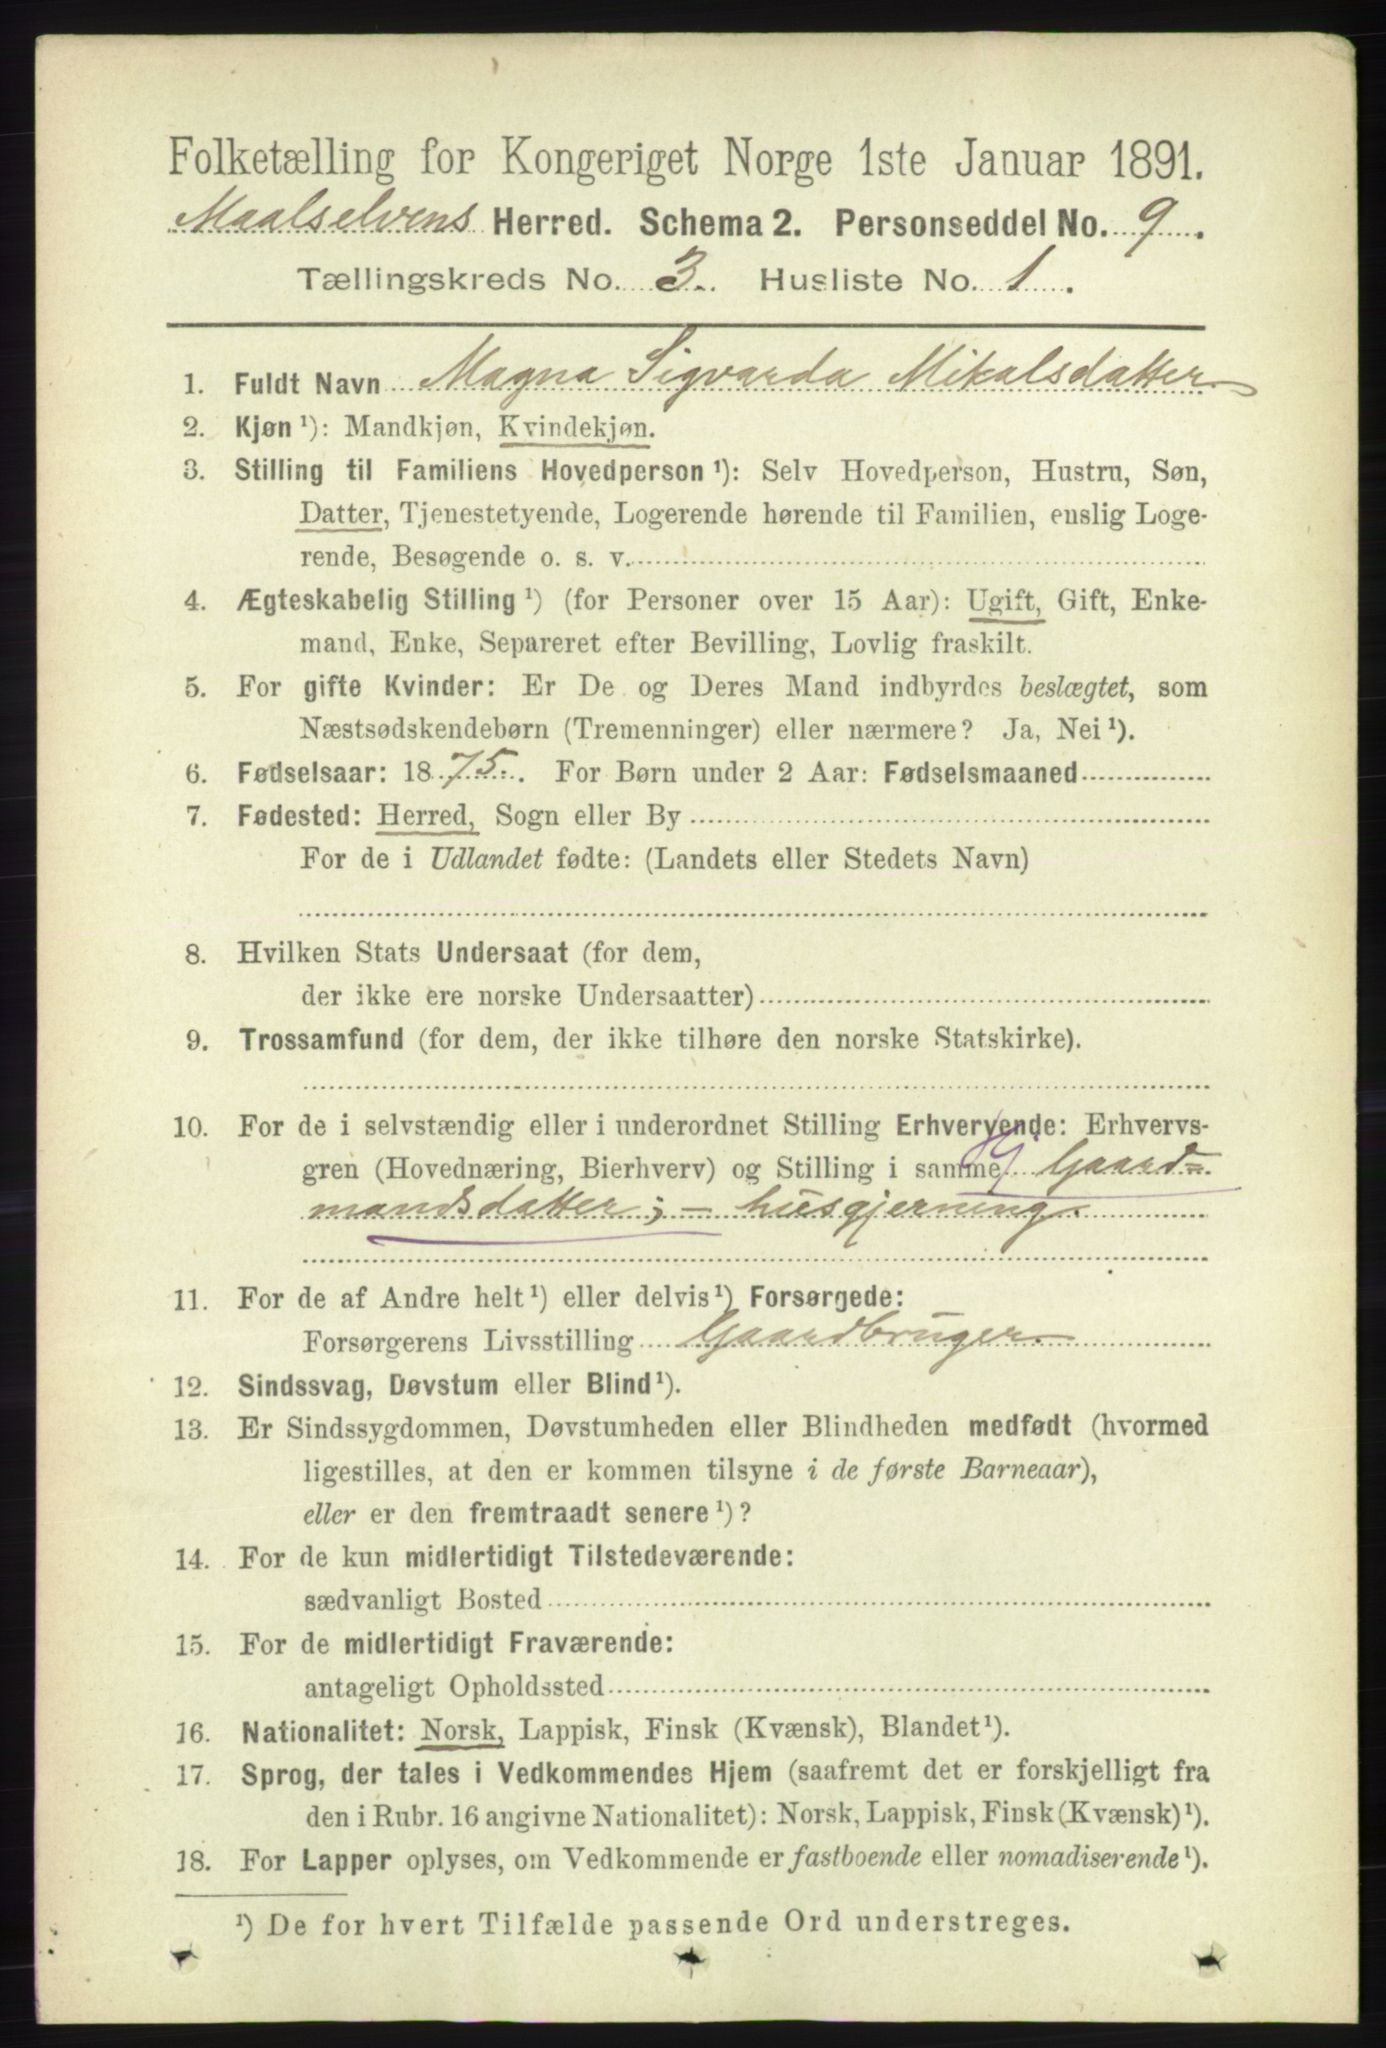 Folketælling for Kongeriget Norge 1ste Januar 1891.
Maalselvens Herred. Schema 2. Personseddel No. 9.
Tællingskreds No. 3. Husliste No. 1.
1. Fuldt Navn Magna Sigvarda Mikalsdatter
2. Kjøn ¹): Mandkjøn, Kvindekjøn.
3. Stilling til Familiens Hovedperson ¹): Selv Hovedperson, Hustru, Søn,
Datter, Tjenestetyende, Logerende hørende til Familien, enslig Loge-
rende, Besøgende o. s. v.
4. Ægteskabelig Stilling ¹) (for Personer over 15 Aar): Ugift, Gift, Enke-
mand, Enke, Separeret efter Bevilling, Lovlig fraskilt.
5. For gifte Kvinder: Er De og Deres Mand indbyrdes beslægtet, som
Næstsødskendebørn (Tremenninger) eller nærmere? Ja, Nei ¹).
6. Fødselsaar: 1875. For Børn under 2 Aar: Fødselsmaaned
7. Fødested: Herred, Sogn eller By
For de i Udlandet fødte: (Landets eller Stedets Navn)
8. Hvilken Stats Undersaat (for dem,
der ikke ere norske Undersaatter)
9. Trossamfund (for dem, der ikke tilhøre den norske Statskirke).
10. For de i selvstændig eller i underordnet Stilling Erhvervende: Erhvervs-
gren (Hovednæring, Bierhverv) og Stilling i samme Gaard=
mandsdatter; – husgjerning.
11. For de af Andre helt ¹) eller delvis ¹) Forsørgede:
Forsørgerens Livsstilling Gaardbruger.
12. Sindssvag, Døvstum eller Blind ¹).
13. Er Sindssygdommen, Døvstumheden eller Blindheden medfødt (hvormed
ligestilles, at den er kommen tilsyne i de første Barneaar),
eller er den fremtraadt senere ¹)?
14. For de kun midlertidigt Tilstedeværende:
sædvanligt Bosted
15. For de midlertidigt Fraværende:
antageligt Opholdssted
16. Nationalitet: Norsk, Lappisk, Finsk (Kvænsk), Blandet ¹).
17. Sprog, der tales i Vedkommendes Hjem (saafremt det er forskjelligt fra
den i Rubr. 16 angivne Nationalitet): Norsk, Lappisk, Finsk (Kvænsk) ¹).
18. For Lapper oplyses, om Vedkommende er fastboende eller nomadiserende ¹).
¹) De for hvert Tilfælde passende Ord understreges.